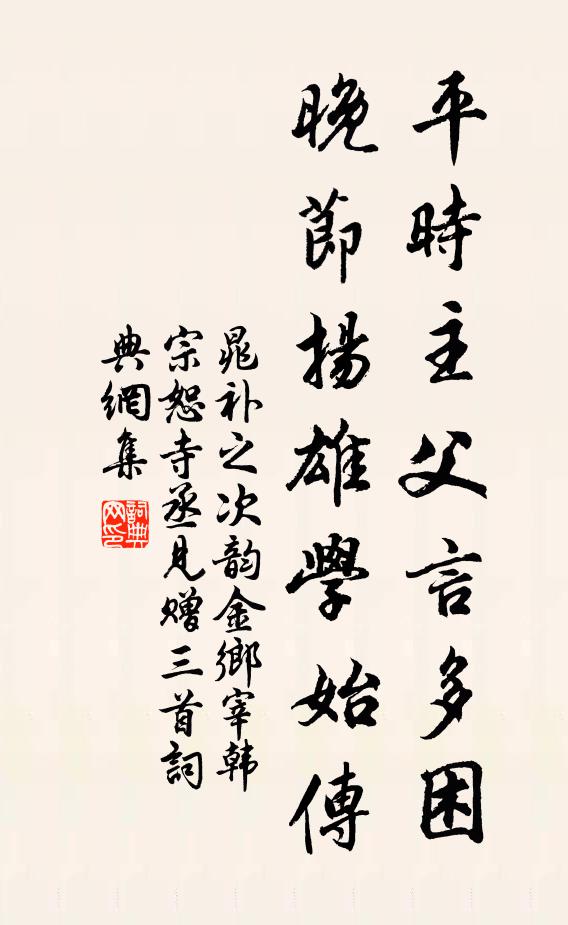 平時主父言多困
晩節揚雄學始傳
晁补之次韵金鄉宰韩
宗恕寺丞見赠三首詞
典網集
詞典
网印